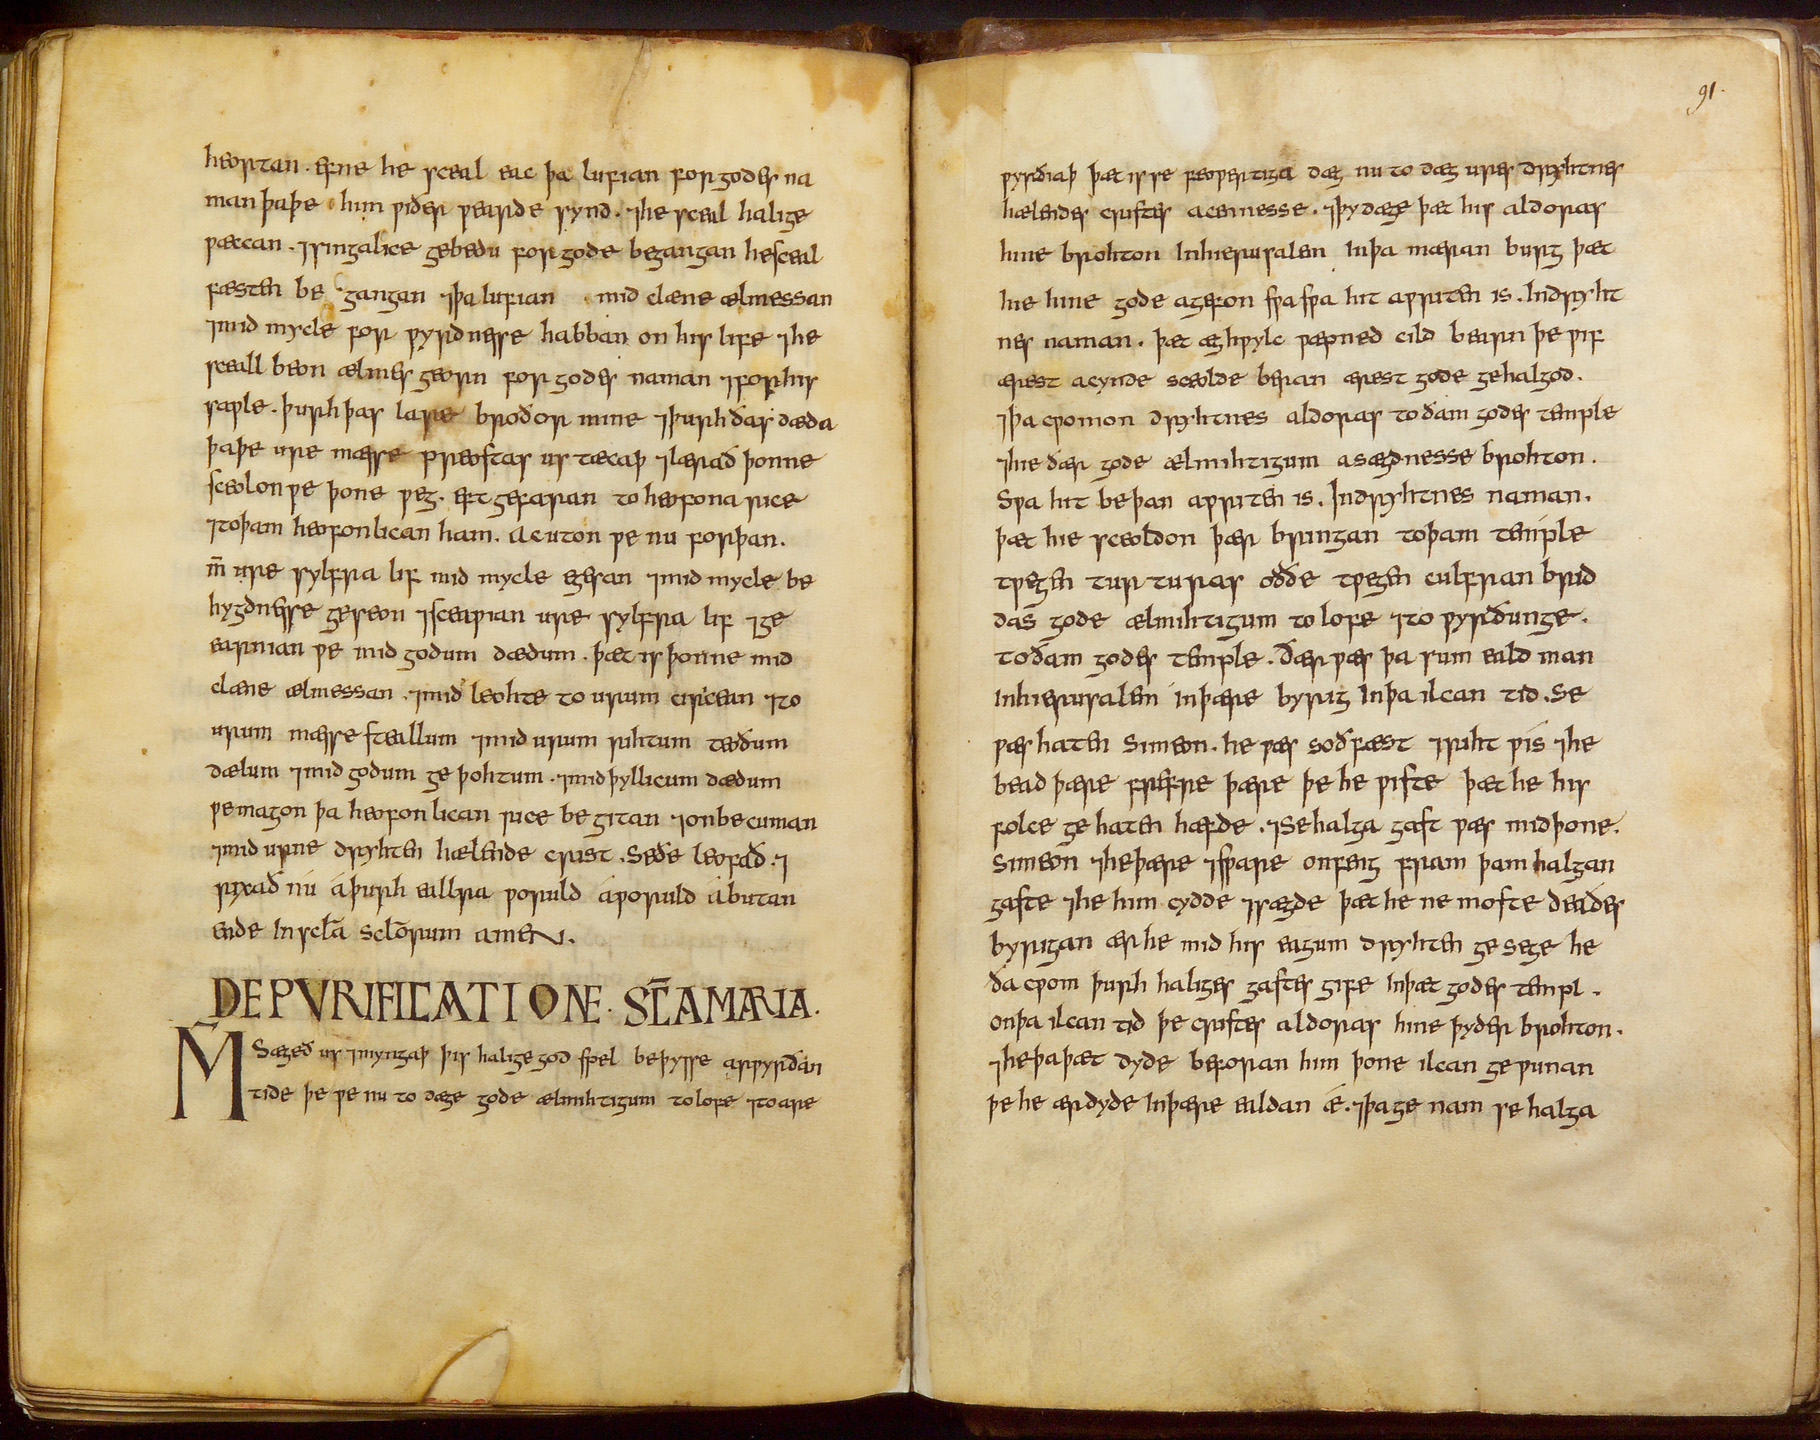 heortan. efne he sceal eac þa lufian for godes na
man þaþe him ƿiðer ƿearde synd. ⁊he sceal halige
ƿæccan. ⁊singalice gebedu for gode begangan he sceal
fæsten be gangan ⁊þa lufian mid clæne ælmessan
⁊mid mycle for ƿyrdnesse habban on his life ⁊he
sceall beon ælmes georn for godes naman ⁊for his
saƿle. þurh þas lare broðor mine ⁊þurh ðas dæda
þaþe ure mæsse preostas us tæcaþ ⁊lærað þonne
sceolon ƿe þone ƿeg. eft gefaran to heofona rice
⁊toþam heofonlican ham. Ac uton ƿe nu forþan.
m̄ ure sylfra lif mid mycle egesan ⁊mid mycle be
hygdnesse geseon ⁊sceaƿian ure sylfra lif ⁊ge
earnian ƿe mid godum dædum. þæt is þonne mid
clæne ælmessan. ⁊mid leohte to urum circean ⁊to
urum mæsse steallum ⁊mid urum rihtum teoðum
dælum ⁊mid godum ge þohtum. ⁊mid þyllicum dædum
ƿe magon þa heofonlican rice be gitan ⁊onbecuman
⁊mid urne dryhten hælende crist. Seðe leofað. ⁊
rixað nú á þurh ealra ƿoruld áƿoruld á butan
ende In sclā sclōrum amen.
DE PVRIFICATIONE. SC̄A MARIA.
M̄ Sægeð us ⁊myngaþ þis halige god spel beþysse arƿyrðan
tide þe ƿe nu to dæge gode ælmihtigum tolofe ⁊toare
91.
ƿyrðiaþ þæt is se feoƿertiga dæg nu to dæg ures dryhtnes
hælendes cristes acennesse. ⁊þy dæge þæt his aldoras
hine brohton Inhierusalem Inþa mæran burg þæt
hie hine gode agefon sƿa sƿa hit aƿriten is. Indryht
nes naman. þæt æghƿylc ƿæpned cild bearn þe ƿif
ærest acynde sceolde beran ærest gode gehalgod.
⁊þa cƿomon dryhtnes aldoras toðam godes temple
⁊hie ðær gode ælmihtigum asægdnesse brohton.
Sƿa hit beþan aƿriten is. Indryhtnes naman.
þæt hie sceoldon þær bringan toþam temple
tƿegen turturas oððe tƿegen culfran brid
das gode ælmihtigum tolofe ⁊to ƿyrðunge.
toðam godes temple. ðær ƿæs þa sum eald man
Inhierusalem inþære byrig Inþa ilcan tid. Se
ƿæs haten Simeon. he ƿæs soðfæst ⁊riht ƿis ⁊he
bead þære frefre þære þe he ƿiste þæt he his
folce ge haten hæfde. ⁊Se halga gast ƿæs midþone.
Simeon ⁊heþære ⁊sƿare onfeng fram þam halgan
gaste ⁊he him cydde ⁊sægde þæt he ne moste deaðes
byrigan ær he mid his eagum dryhten ge sege he
ða cƿom þurh haliges gastes gife Inþæt godes templ.
onþa ilcan tid þe cristes aldoras hine þyder brohton.
⁊heþaþæt dyde beforan him þone ilcan geƿunan
þe he ærdyde Inþære ealdan ǽ. ⁊þa ge nam se halga